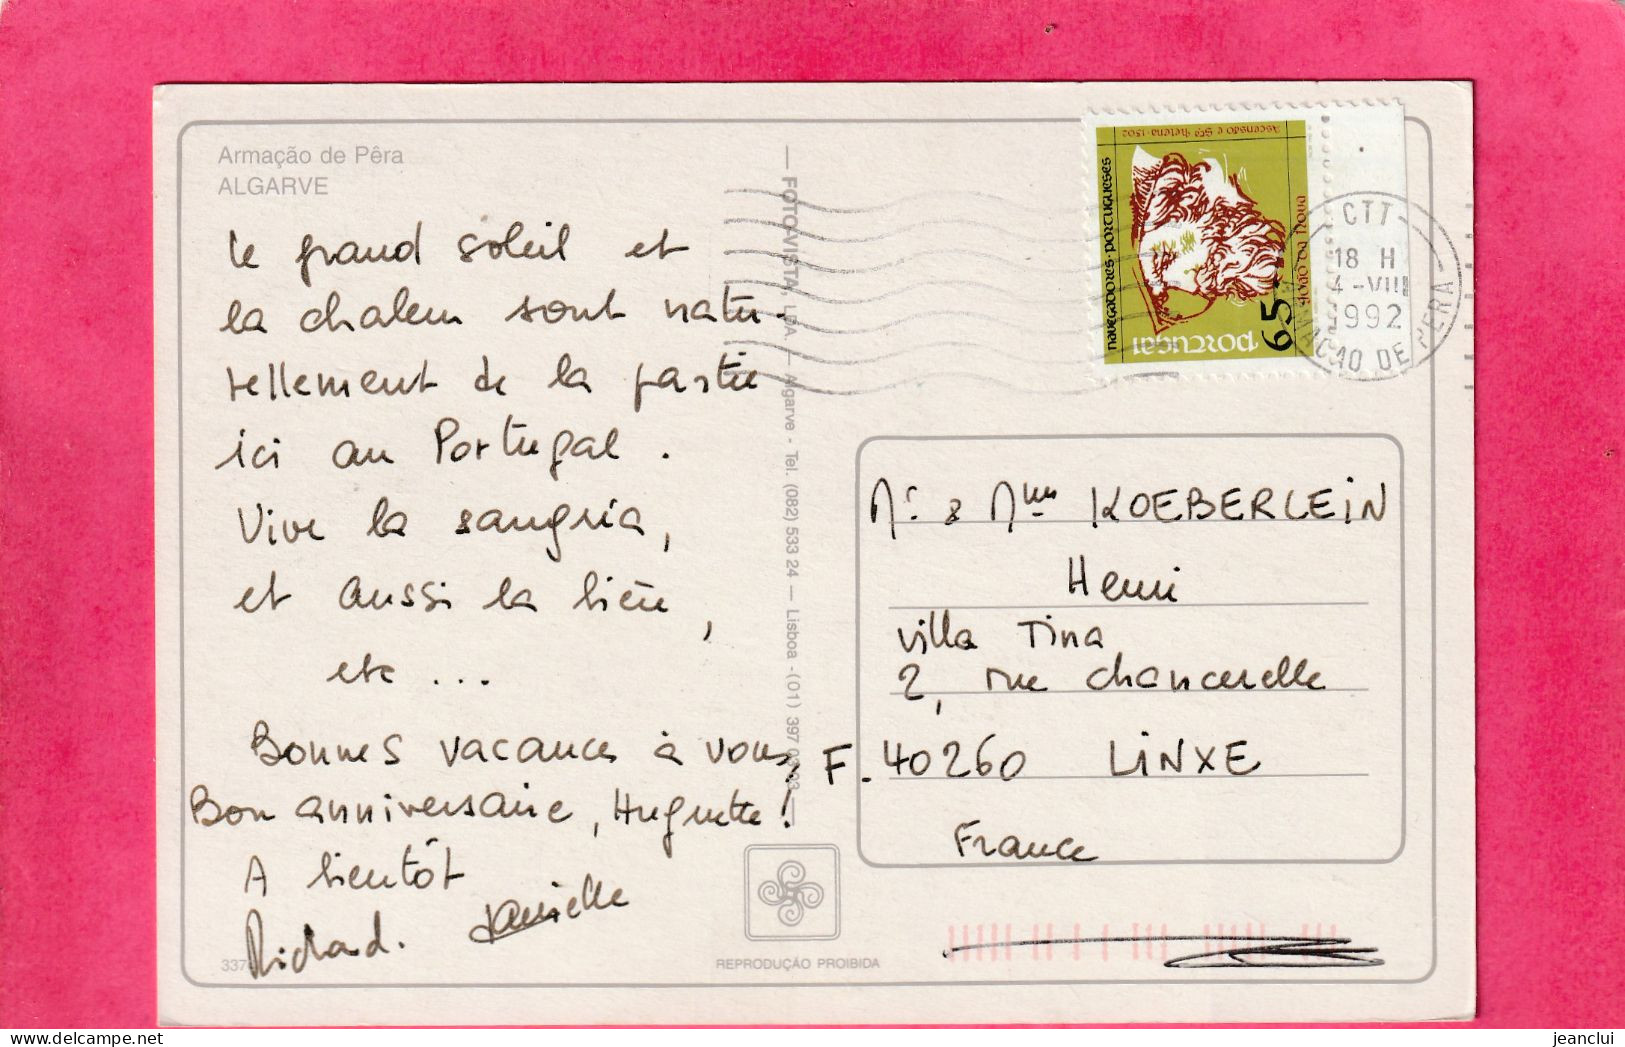 Armação de Pêra
ALGARVE
le grand soleil et
la chaleur sont natu-
rellement de la partie
ici au Portugal.
Vive la sangria,
et aussi la bière,
etc...
Bonnes vacances à vous,
Bon anniversaire, Huguette!
A bientôt
Richard. Danielle
337
— FOTOVISTA, LDA. — Algarve - Tel. (082) 533 24 — Lisboa - (01) 397
REPRODUÇÃO PROIBIDA
navegadores portugueses
Ascensão e Stª Helena 1502
João da Nova
65.
Portugal
CTT
18 H
4-VIII
1992
MAÇAO DE PERA
Mr & Mme KOEBERLEIN
Henri
Villa Tina
2, rue chancerelle
F. 40260 LINXE
France
jeanclui